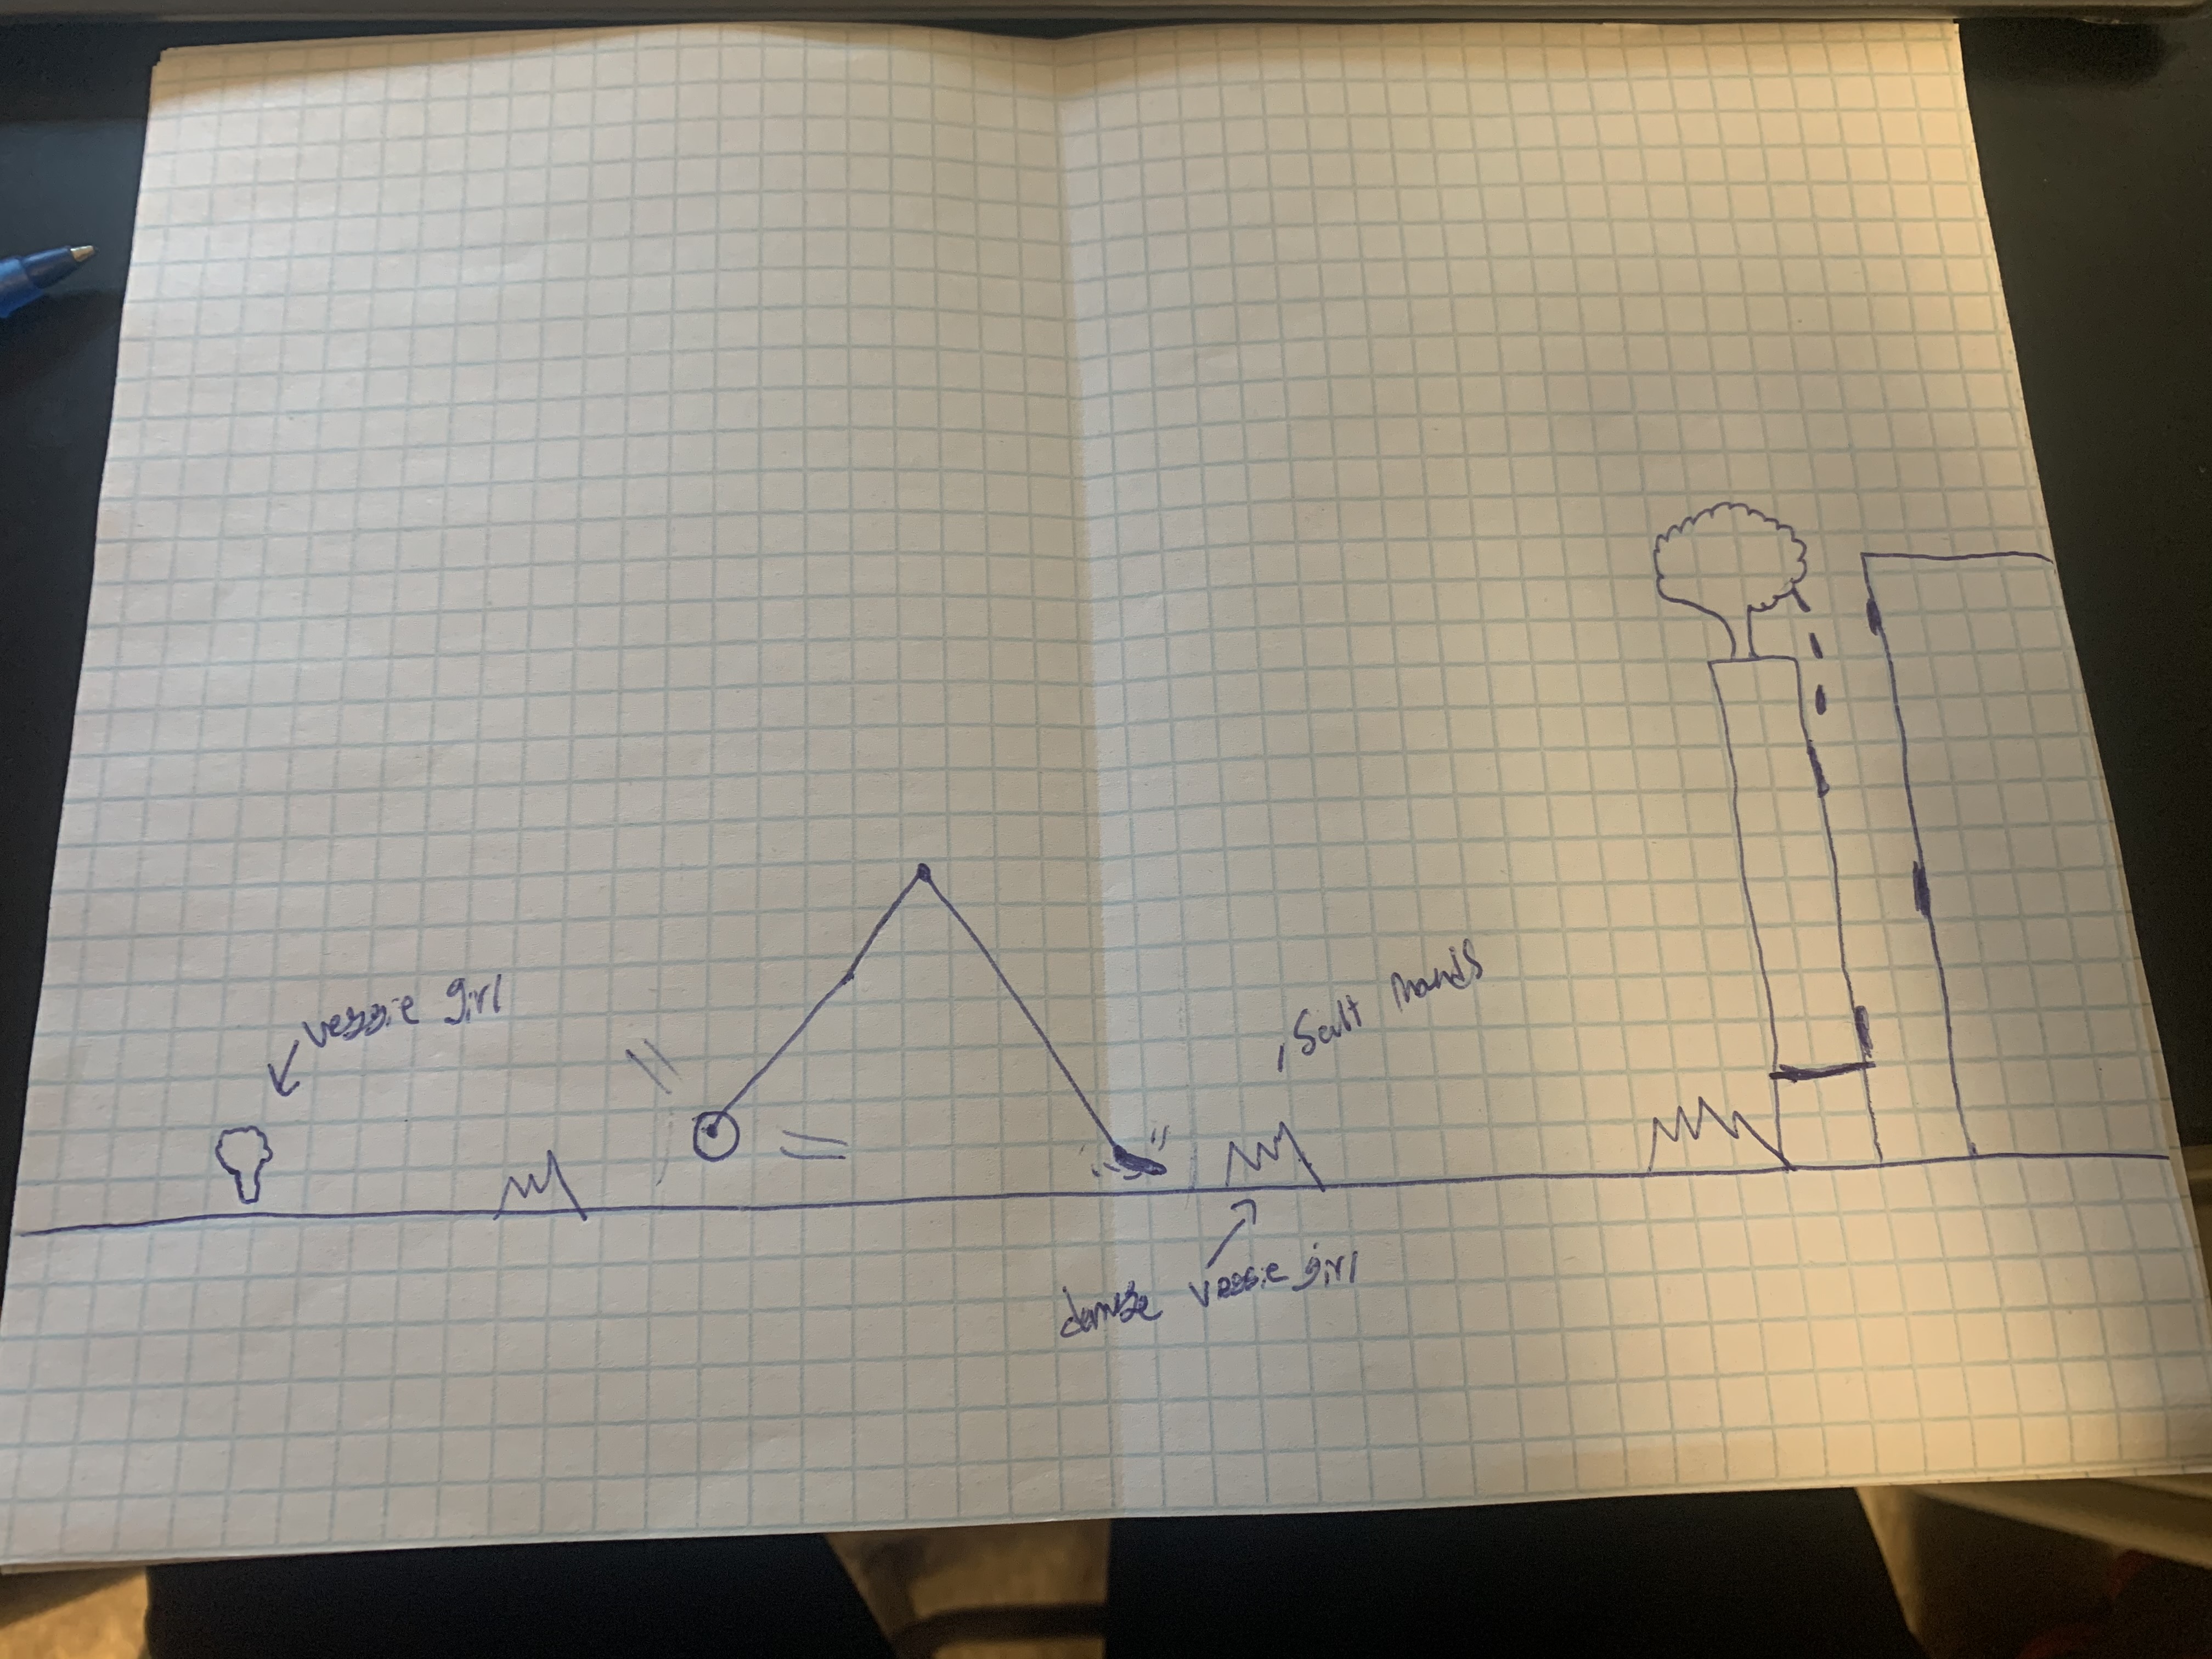 veggie girl
, Salt mans
dombe veggie girl